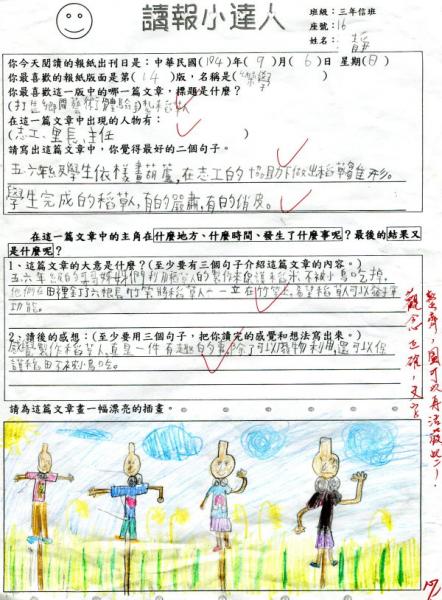 讀報小達人
班級：三年信班
座號：16
姓名：
你今天閱讀的報紙出刊日是：中華民國(104)年(9)月(6)日 星期(日)
你最喜歡的報紙版面是第(14)版，名稱是( )
你最喜歡這一版中的哪一篇文章，標題是什麼？
在這一篇文章中出現的人物有：
(志工、里長、主任)
請寫出這篇文章中，你覺得最好的二個句子。
五六年級學生依樣畫葫蘆，在志工的協助下做出稻草人雛形。
學生完成的稻草人，有的嚴肅，有的俏皮。
在這一篇文章中的主角在什麼地方、什麼時間、發生了什麼事呢？最後的結果又
是什麼呢？
1、這篇文章的大意是什麼？(至少要有三個句子介紹這篇文章的內容。)
五六年級的哥哥姊姊們利用稻草人的製作來保護稻米不被小鳥吃掉。
他們在田裡釘了六根長竹竿，將稻草人一一立在竹竿上，希望稻草人可以發揮
功能。
2、讀後的感想：(至少要用三個句子，把你讀完的感覺和想法寫出來。)
感覺製作稻草人真是一件有趣的事，除了可以廢物利用，還可以保
護稻田不被小鳥吃。
請為這篇文章畫一幅漂亮的插畫。
觀念正確，文字
整齊，圖可以再活潑些！